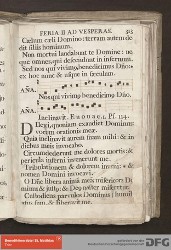 FERIA II AD VESPERAS. 
Cælum cæli Domino: terram autem de
dit filiis hominum.
Non mortui laudabunt te Domine: ne
que omnes, qui descendunt in infernum.
Sed nos qui vivimus, benedicimus Dño:
ex hoc nunc & usque in sæculum.
AÑA.
Nos qui vivimus, benedicimus Dño.
AÑA.
Inclinavit. Euouae. Pſ. 114.
Dilexi, quoniam exaudiet Dominus:
vocem orationis meæ.
Quia inclinavit aurem suam mihi: & in
diebus meis invocabo.
Circumdederunt me dolores mortis: &
pericula inferni invenerunt me.
Tribulationem & dolorem inveni: &
nomen Domini invocavi.
O Domine libera animam meam: misericors Do
minus & justus, & Deus noster miseretur.
Custodiens parvulos Dominus: humili
atus sum, & liberavit me.
DFG